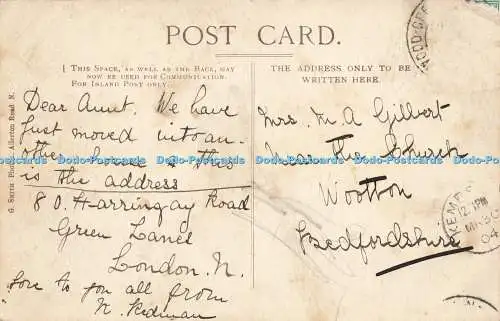 POST CARD.
THIS SPACE, AS WELL AS THE BACK, MAY
NOW BE USED FOR COMMUNICATION.
FOR INLAND POST ONLY.
THE ADDRESS ONLY TO BE
WRITTEN HERE.
Allerton Road N.
Dear Aunt. We have
just moved into an-
ther house & this
is the address
80. Harringay Road
Green Lanes
London. N.
love to you all from
N. Kidman
Mrs. M A Gilbert
Near The Church
Wootton
Bedfordshire
KEMPS
12. PM
04
Dodo-Postcards Dodo-Postcards Dodo-Postcards Dodo-Postcards Dodo-Postcards